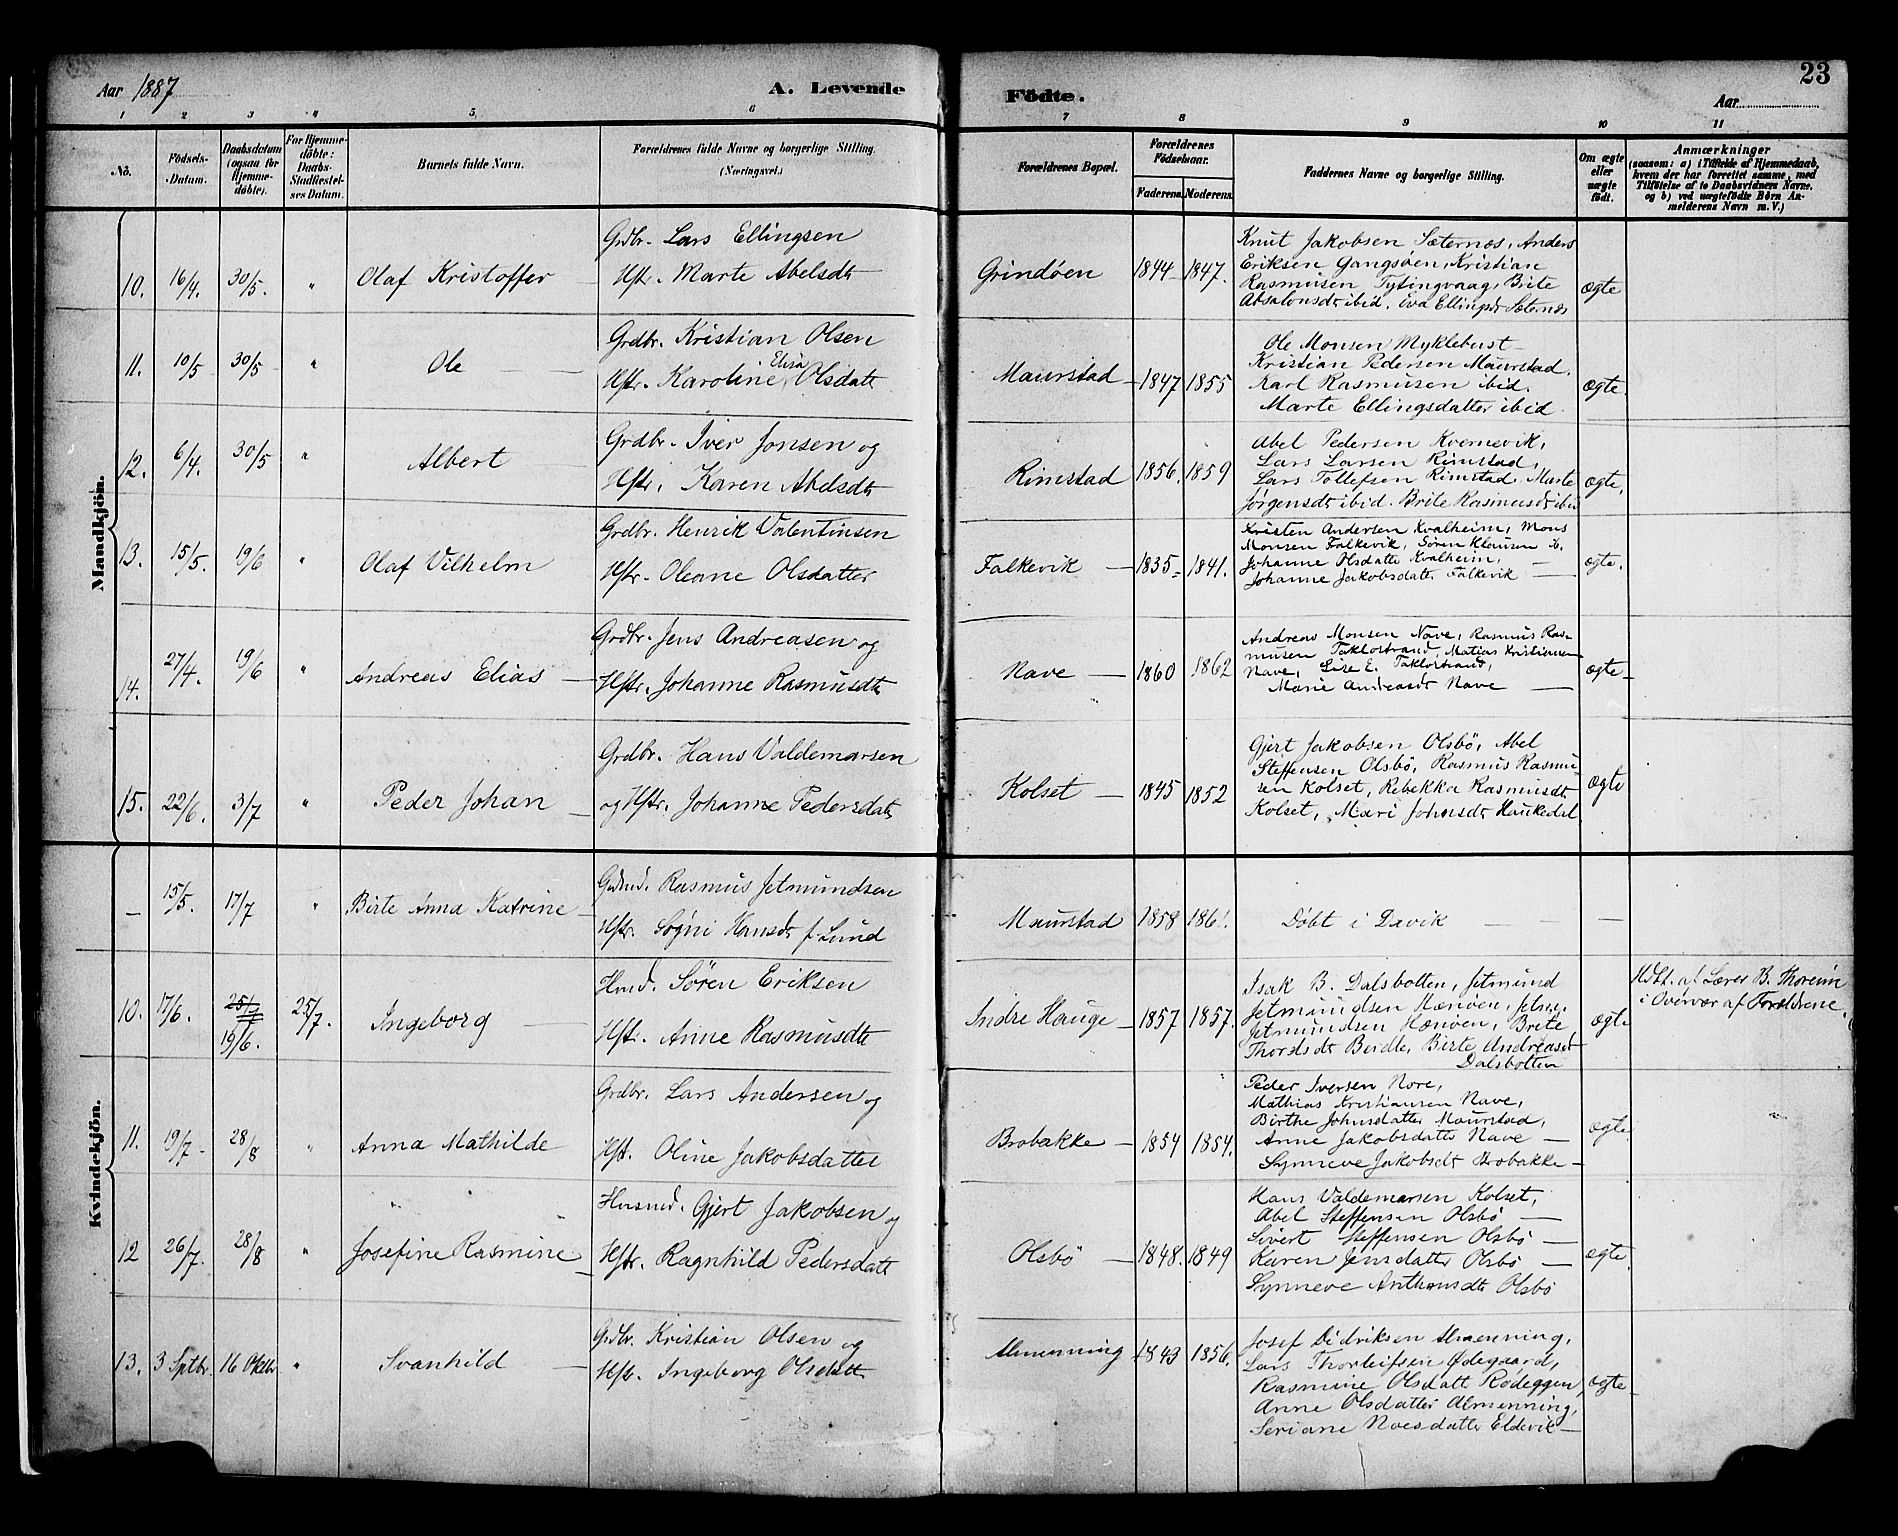 Aar 1887
A. Levende
Födte.
23
Aar
1 2 3 4 5 6 7 8 9 10 11
No.
Födsels-
Datum.
Daabsdatum
(ogsaa for
Hjemme-
döbte).
For Hjemme-
döbte:
Daabs-
Stadfæstel-
ses Datum.
Barnets fulde Navn.
Forældrenes fulde Navne og borgerlige Stilling.
(Næringsvei.)
Forældrenes Bopæl.
Forældrenes
Födselsaar.
Faderens. Moderens.
Faddernes Navne og borgerlige Stilling.
Om ægte
eller
uægte
født.
Anmærkninger
(saasom: a) i Tilfælde af Hjemmedaab,
hvem der har forrettet samme, med
Tilföielse af to Daabsvidners Navne,
og b) ved uægtefödte Börn An-
melderens Navn m. V.)
Mandkjön.
10. 16/4. 30/5. " Olaf Kristoffer
Grdbr. Lars Ellingsen
Hstr. Marte Abelsdtr
Grindöen 1844 1847.
Knut Jakobsen Sæternes, Anders
Eriksen Gangsöen, Kristian
Rasmusen Tytingvaag, Brite
Absalonsdtr ibid. Eva Ellingsdr Sæternes
ægte
11. 10/5 30/5 " Ole
Grdbr. Kristian Olsen
Elisa
Hstr. Karoline Olsdatt
Maurstad 1847 1855
Ole Monsen Myklebust
Kristian Pedersen Maurstad.
Karl Rasmusen ibid.
Marte Ellingsdatter ibid.
ægte.
12. 6/4. 30/5 " Albert
Grdbr. Iver Jonsen og
Hstr. Karen Abelsdtr
Rimstad 1856. 1859
Abel Pedersen Kvernevik,
Lars Larsen Rimstad,
Lars Tollefsen Rimstad. Marte
Jörgensdtr ibid. Brite Rasmusdtr ibid
ægte.
13. 15/5. 19/6 " Olaf Vilhelm
Grdbr. Henrik Valentinsen
Hstr. Oleane Olsdatter
Falkevik 1835 1841.
Kristen Andersen Kvalheim, Mons
Monsen Falkevik, Sören Klausen ib.
Johanne Olsdatter Kvalheim,
Johanne Jakobsdatter Falkevik
ægte.
14. 27/4. 19/6 " Andreas Elias
Grdbr. Jens Andreasen og
Hstr. Johanne Rasmusdtr
Nave 1860 1862
Andreas Monsen Nave, Rasmus Ras-
musen Taklostrand, Matias Kristiansen
Nave, Lise E. Taklostrand,
Marie Andreasdr Nave
ægte
15. 22/6. 3/7 " Peder Johan
Grdbr. Hans Valdemarsen
og Hstr. Johanne Pedersdatr
Kolset 1845 1852
Gjert Jakobsen Olsbö, Abel
Steffensen Olsbö, Rasmus Rasmu-
sen Kolset, Rebekka Rasmusdtr
Kolset, Mari Johnsdtr Haukedal
ægte
Kvindekjön.
– 15/5. 17/7 " Birte Anna Katrine
Rasmus Jetmundsen
Hstr. Sögni Hansdtr f. Lund
Maurstad 1858 1861.
Döbt i Davik
10. 17/6. 25/7 19/6. 25/7. Ingeborg
Hmd. Sören Eriksen
Hstr. Anne Rasmusdtr
Indre Hauge 1857 1857.
Isak B. Dalsbotten, Jetmund
Jetmundsen Henöen, Jetm.
Jetmundsen Henöen, Brite
Thordsdtr Berdle, Birte Andreasdr
Dalsbotten
ægte
Hdbt. af Lærer B. Thoreim
i Overvær af Forældrene.
11. 19/7. 28/8 " Anna Mathilde
Grdbr. Lars Andersen og
Hstr. Oline Jakobsdatter
Brobakke 1854 1854.
Peder Iversen Nore,
Mathias Kristiansen Nave,
Birthe Johnsdatter Maurstad,
Anne Jakobsdatter Nave
Synneve Jakobsdtr Brobakke
ægte.
12 26/7. 28/8 " Josefine Rasmine
Husmd. Gjert Jakobsen og
Hstr. Ragnhild Pedersdatt
Olsbö 1848. 1849
Hans Valdemarsen Kolset,
Abel Steffensen Olsbö
Sivert Steffensen Olsbö
Karen Jensdatter Olsbö
Synneve Anthonsdtr Olsbö
ægte.
13. 3 Sptbr. 16 Oktbr " Svanhild
Grdbr. Kristian Olsen og
Hstr. Ingeborg Olsdatt
Almenning 1843 1856.
Josef Didriksen Almenning,
Lars Thorleifsen Ødegaard,
Rasmine Olsdatt Rödeggen,
Anne Olsdatter Almenning,
Seriane Noesdatter Eldevik
ægte